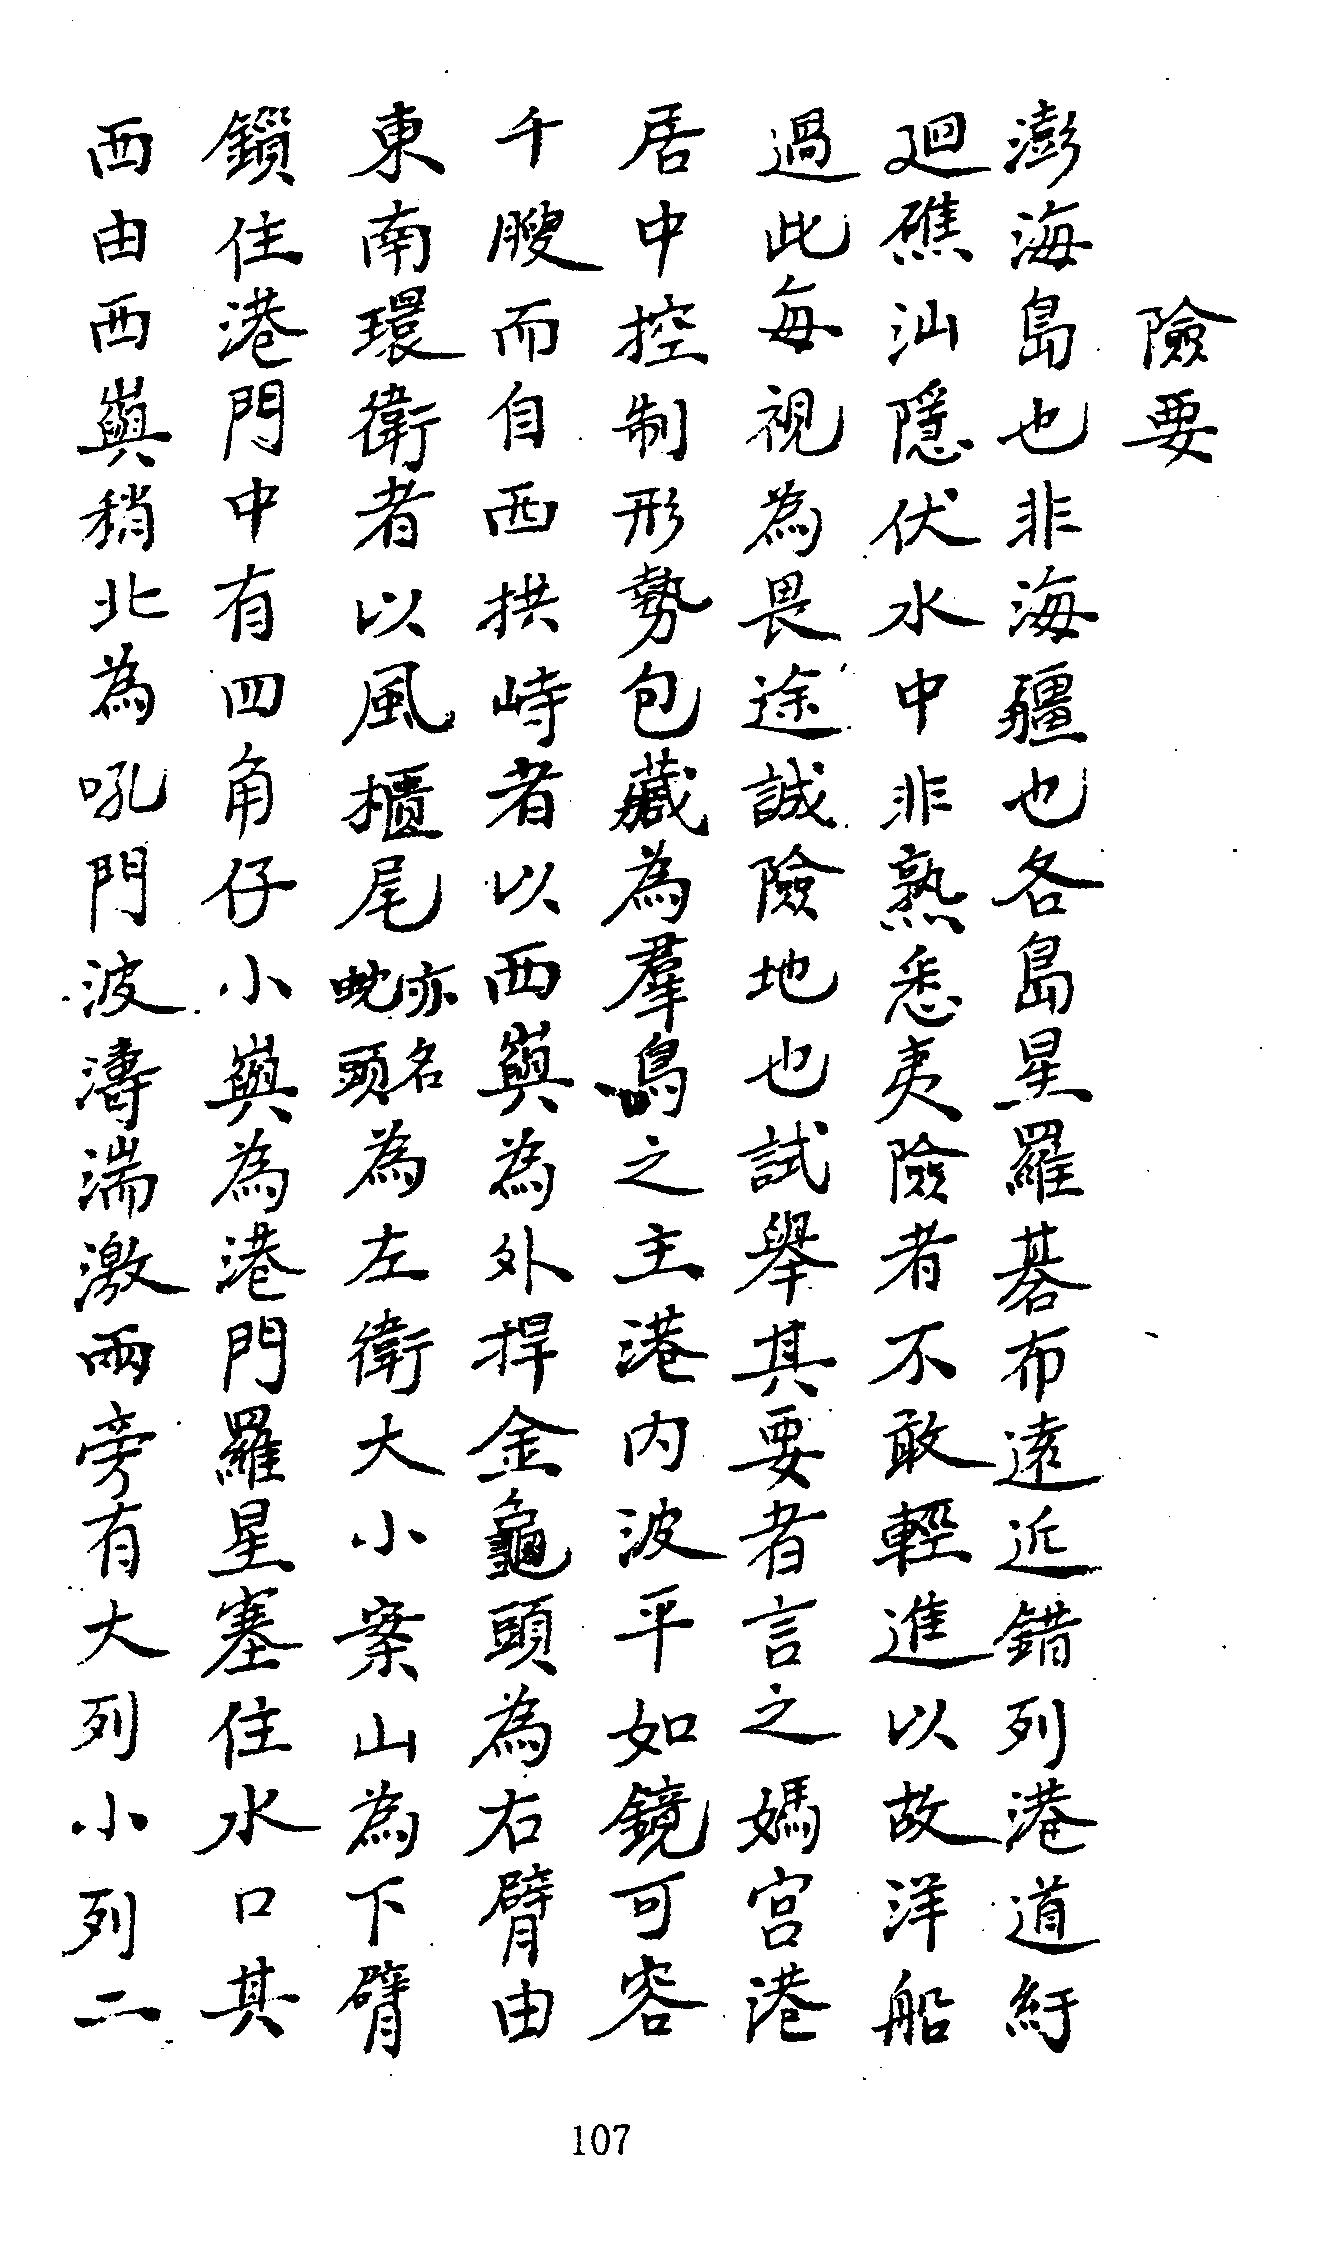 險要
澎海島也非海疆也各島星羅碁布遠近錯列港道紆
廻礁汕隱伏水中非熟悉夷險者不敢輕進以故洋船
過此每視為畏途誠險地也試舉其要者言之媽宮港
居中控制形勢包藏為羣島之主港內波平如鏡可容
千艘而自西拱峙者以西嶼為外捍金龜頭為右臂由
東南環衛者以風櫃尾亦名蛇頭為左衛大小案山為下臂
鎖住港門中有四角仔小嶼為港門羅星塞住水口其
西由西嶼稍北為吼門波濤湍激兩旁有大列小列二
107